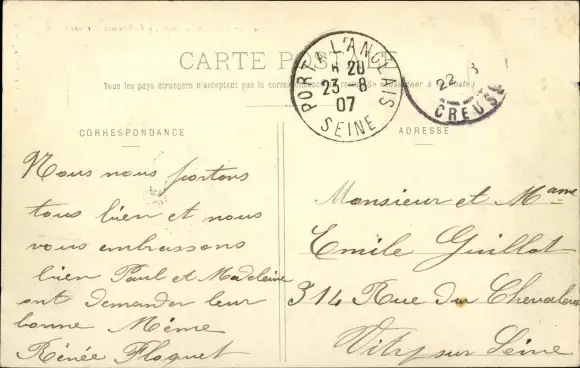 CARTE POSTALE
Tous les pays étrangers n'acceptent pas la correspondance au recto
PORT A L'ANGLAIS
20
23 - 8
07
SEINE
22
CREUSE
CORRESPONDANCE
ADRESSE
Nous nous portons
tous bien et nous
vous embrassons
bien Paul et Madeleine
ont demander leur
bonne Mémé
Rénée Floquet
Monsieur et Mame
Emile Guillot
314 Rue du Chevaleret
Vitry sur Seine